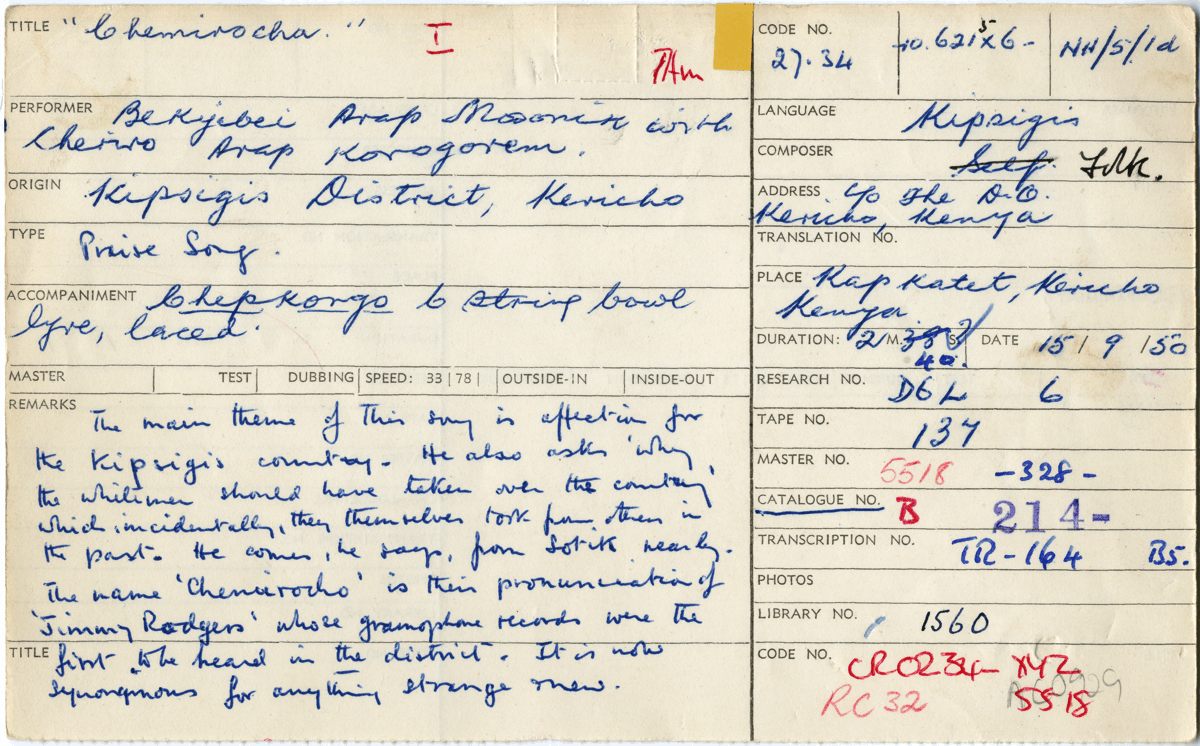 TITLE "Chemirocha." I
7Am
PERFORMER Bekyibei Arap Mosonik with
Cheriro Arap Korogorem.
ORIGIN Kipsigis District, Kericho
TYPE Praise Song.
ACCOMPANIMENT Chepkongo 6 string bowl
lyre, laced.
MASTER TEST DUBBING SPEED: 33 | 78 | OUTSIDE-IN INSIDE-OUT
REMARKS The main theme of this song is affection for
the Kipsigis country. He also asks 'why,
the whitemen should have taken over the country
which, incidentally, they themselves took from others in
the past. He comes, he says, from Sotik nearby.
The name 'Chemirocho' is their pronunciation of
'Jimmy Rodgers' whose gramophone records were the
TITLE first to be heard in the district. It is now
synonymous for anything strange & new.
CODE NO. 27.34 10.6215X6- NH/5/1d
LANGUAGE Kipsigis
COMPOSER Self. Folk.
ADDRESS c/o The D.O.
Kericho, Kenya
TRANSLATION NO.
PLACE Kapkatet, Kericho
Kenya.
DURATION: 2 M. 38 S. DATE 15/ 9 /50
40.
RESEARCH NO. D6L 6
TAPE NO. 137
MASTER NO. 5518 -328-
CATALOGUE NO. B 214-
TRANSCRIPTION NO. TR-164 B5.
PHOTOS
LIBRARY NO. 1560
CODE NO. CR0234- X42
RC 32 5518